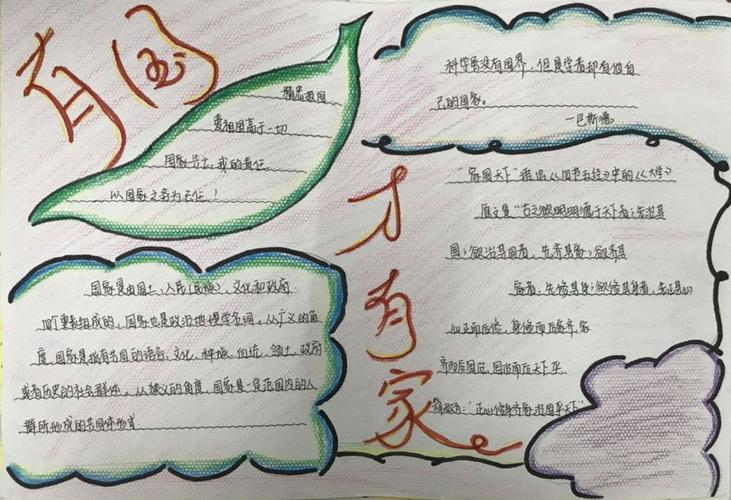 有国
精忠报国
爱祖国高于一切
国家兴亡,我的责任
以国家之务为己任!
国家是由国土、人民(民族)、文化和政府
四个要素组成的,国家也是政治地理学名词。从广义的角
度,国家是指有共同的语言、文化、种族、血统、领土、政府
或者历史的社会群体。从狭义的角度,国家是一定范围内的人
群所形成的共同体形式
才有家
科学虽没有国界,但是学者却有他自
己的国家。
—巴斯德
“家国天下”语出《四书五经》中的《大学》
原文是“古之欲明明德于天下者;先治其
国;欲治其国者,先齐其家;欲齐其
家者;先修其身;欲修其身者,先正其心
心正而后修,身修而后齐家
齐而后国治,国治而后天下平
简称为:“正心修身齐家治国平天下”